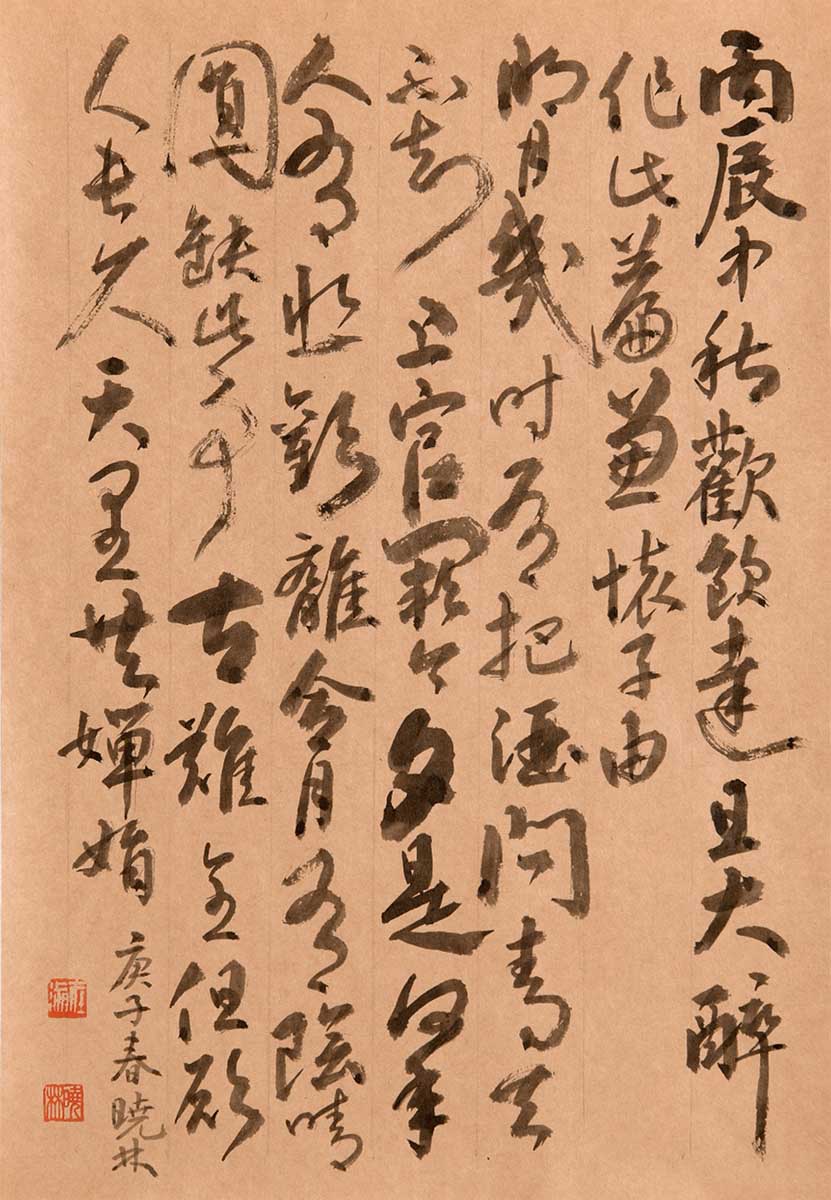 丙辰中秋歡飲達旦大醉
作此篇兼懷子由
明月幾时有把酒問青天
不知上宫闕今夕是何年
人有悲歡離合月有陰晴
圓缺此事古難全但願
人長久千里共嬋娟
庚子春曉林